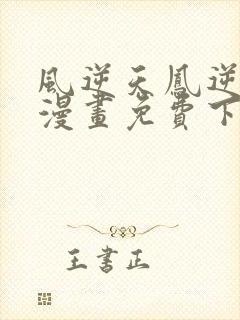 風逆天鳳逆
漫畫免費下
王書正